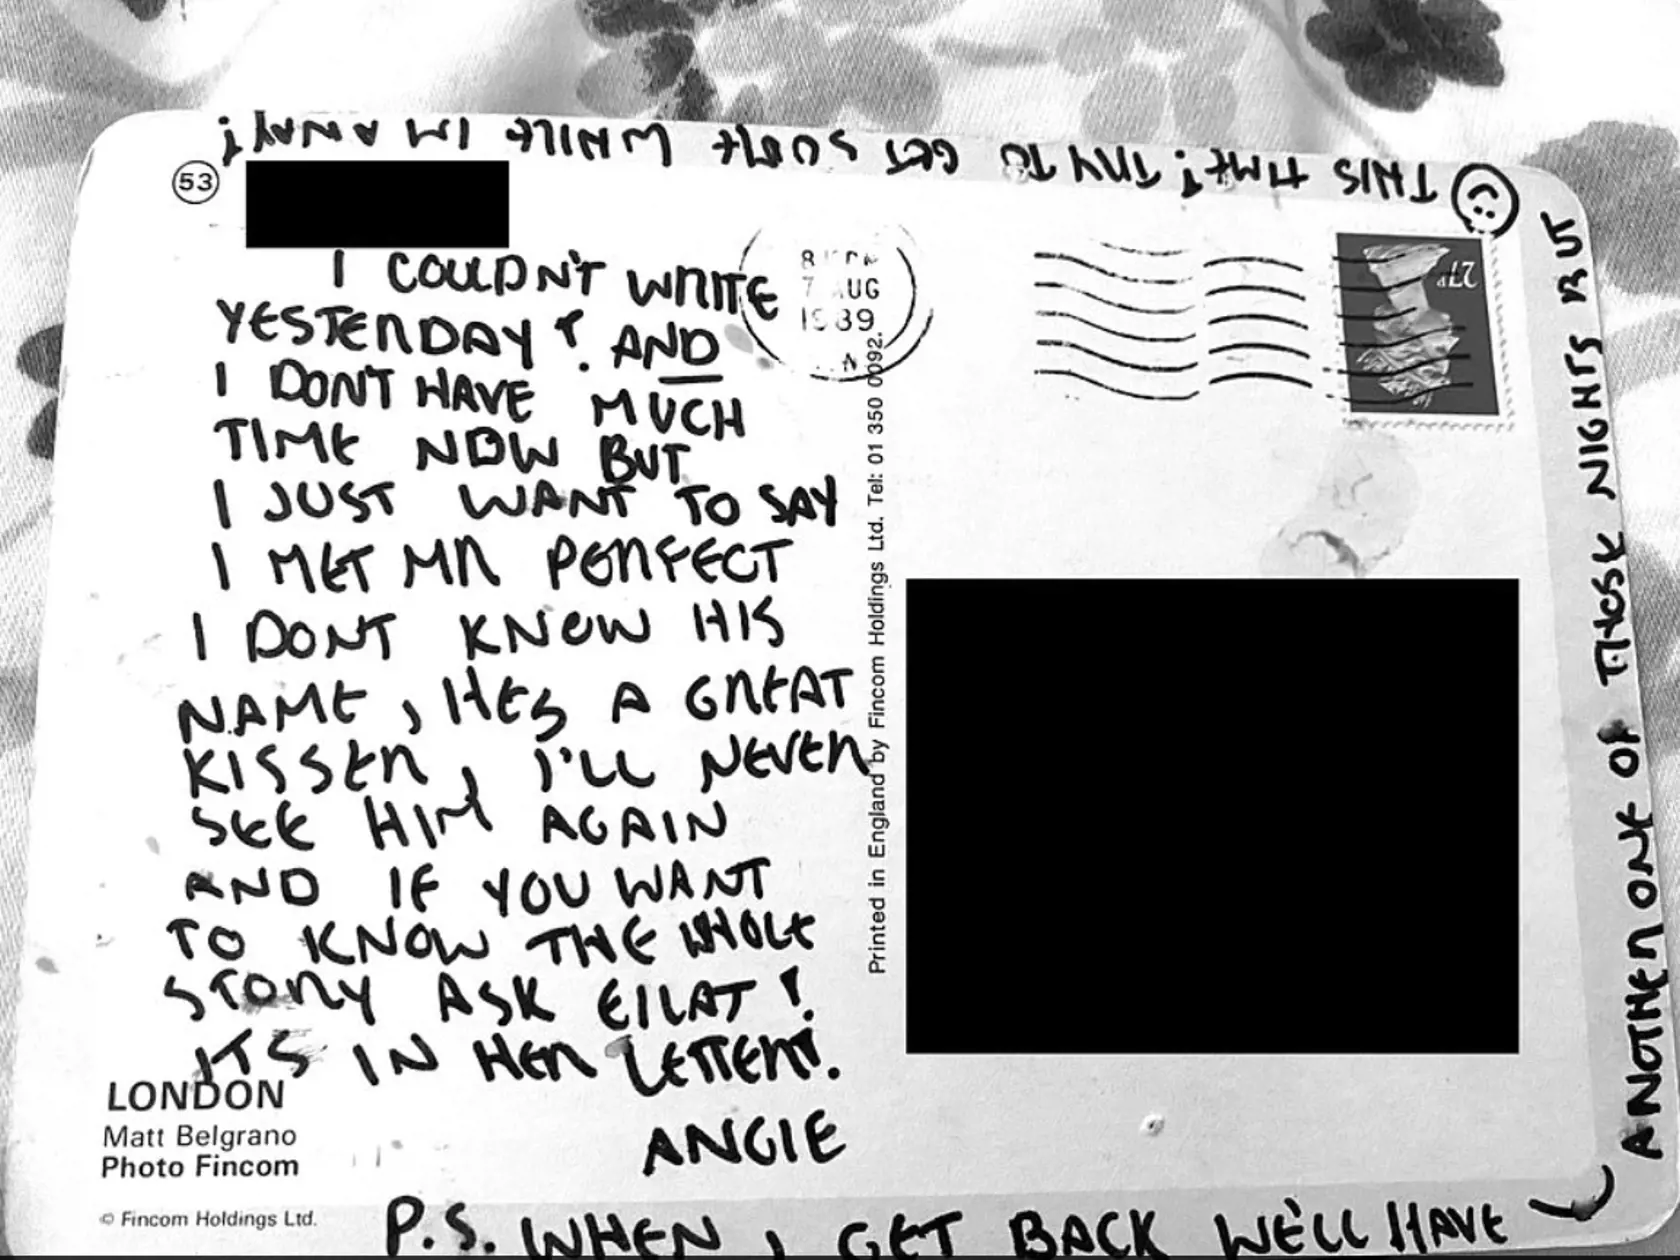 53
I COULDN'T WRITE
YESTERDAY! AND
I DON'T HAVE MUCH
TIME NOW BUT
I JUST WANT TO SAY
I MET MR PERFECT
I DONT KNOW HIS
NAME, HES A GREAT
KISSER, I'LL NEVER
SEE HIM AGAIN
AND IF YOU WANT
TO KNOW THE WHOLE
STORY ASK EILAT!
ITS IN HER LETTER!.
ANGIE
P.S. WHEN I GET BACK WE'LL HAVE
ANOTHER ONE OF THOSE NIGHTS BUT
THIS TIME! TRY TO GET SOME WHILE IM AWAY!
7 AUG
1989
27P
Printed in England by Fincom Holdings Ltd. Tel: 01 350 0092.
LONDON
Matt Belgrano
Photo Fincom
© Fincom Holdings Ltd.